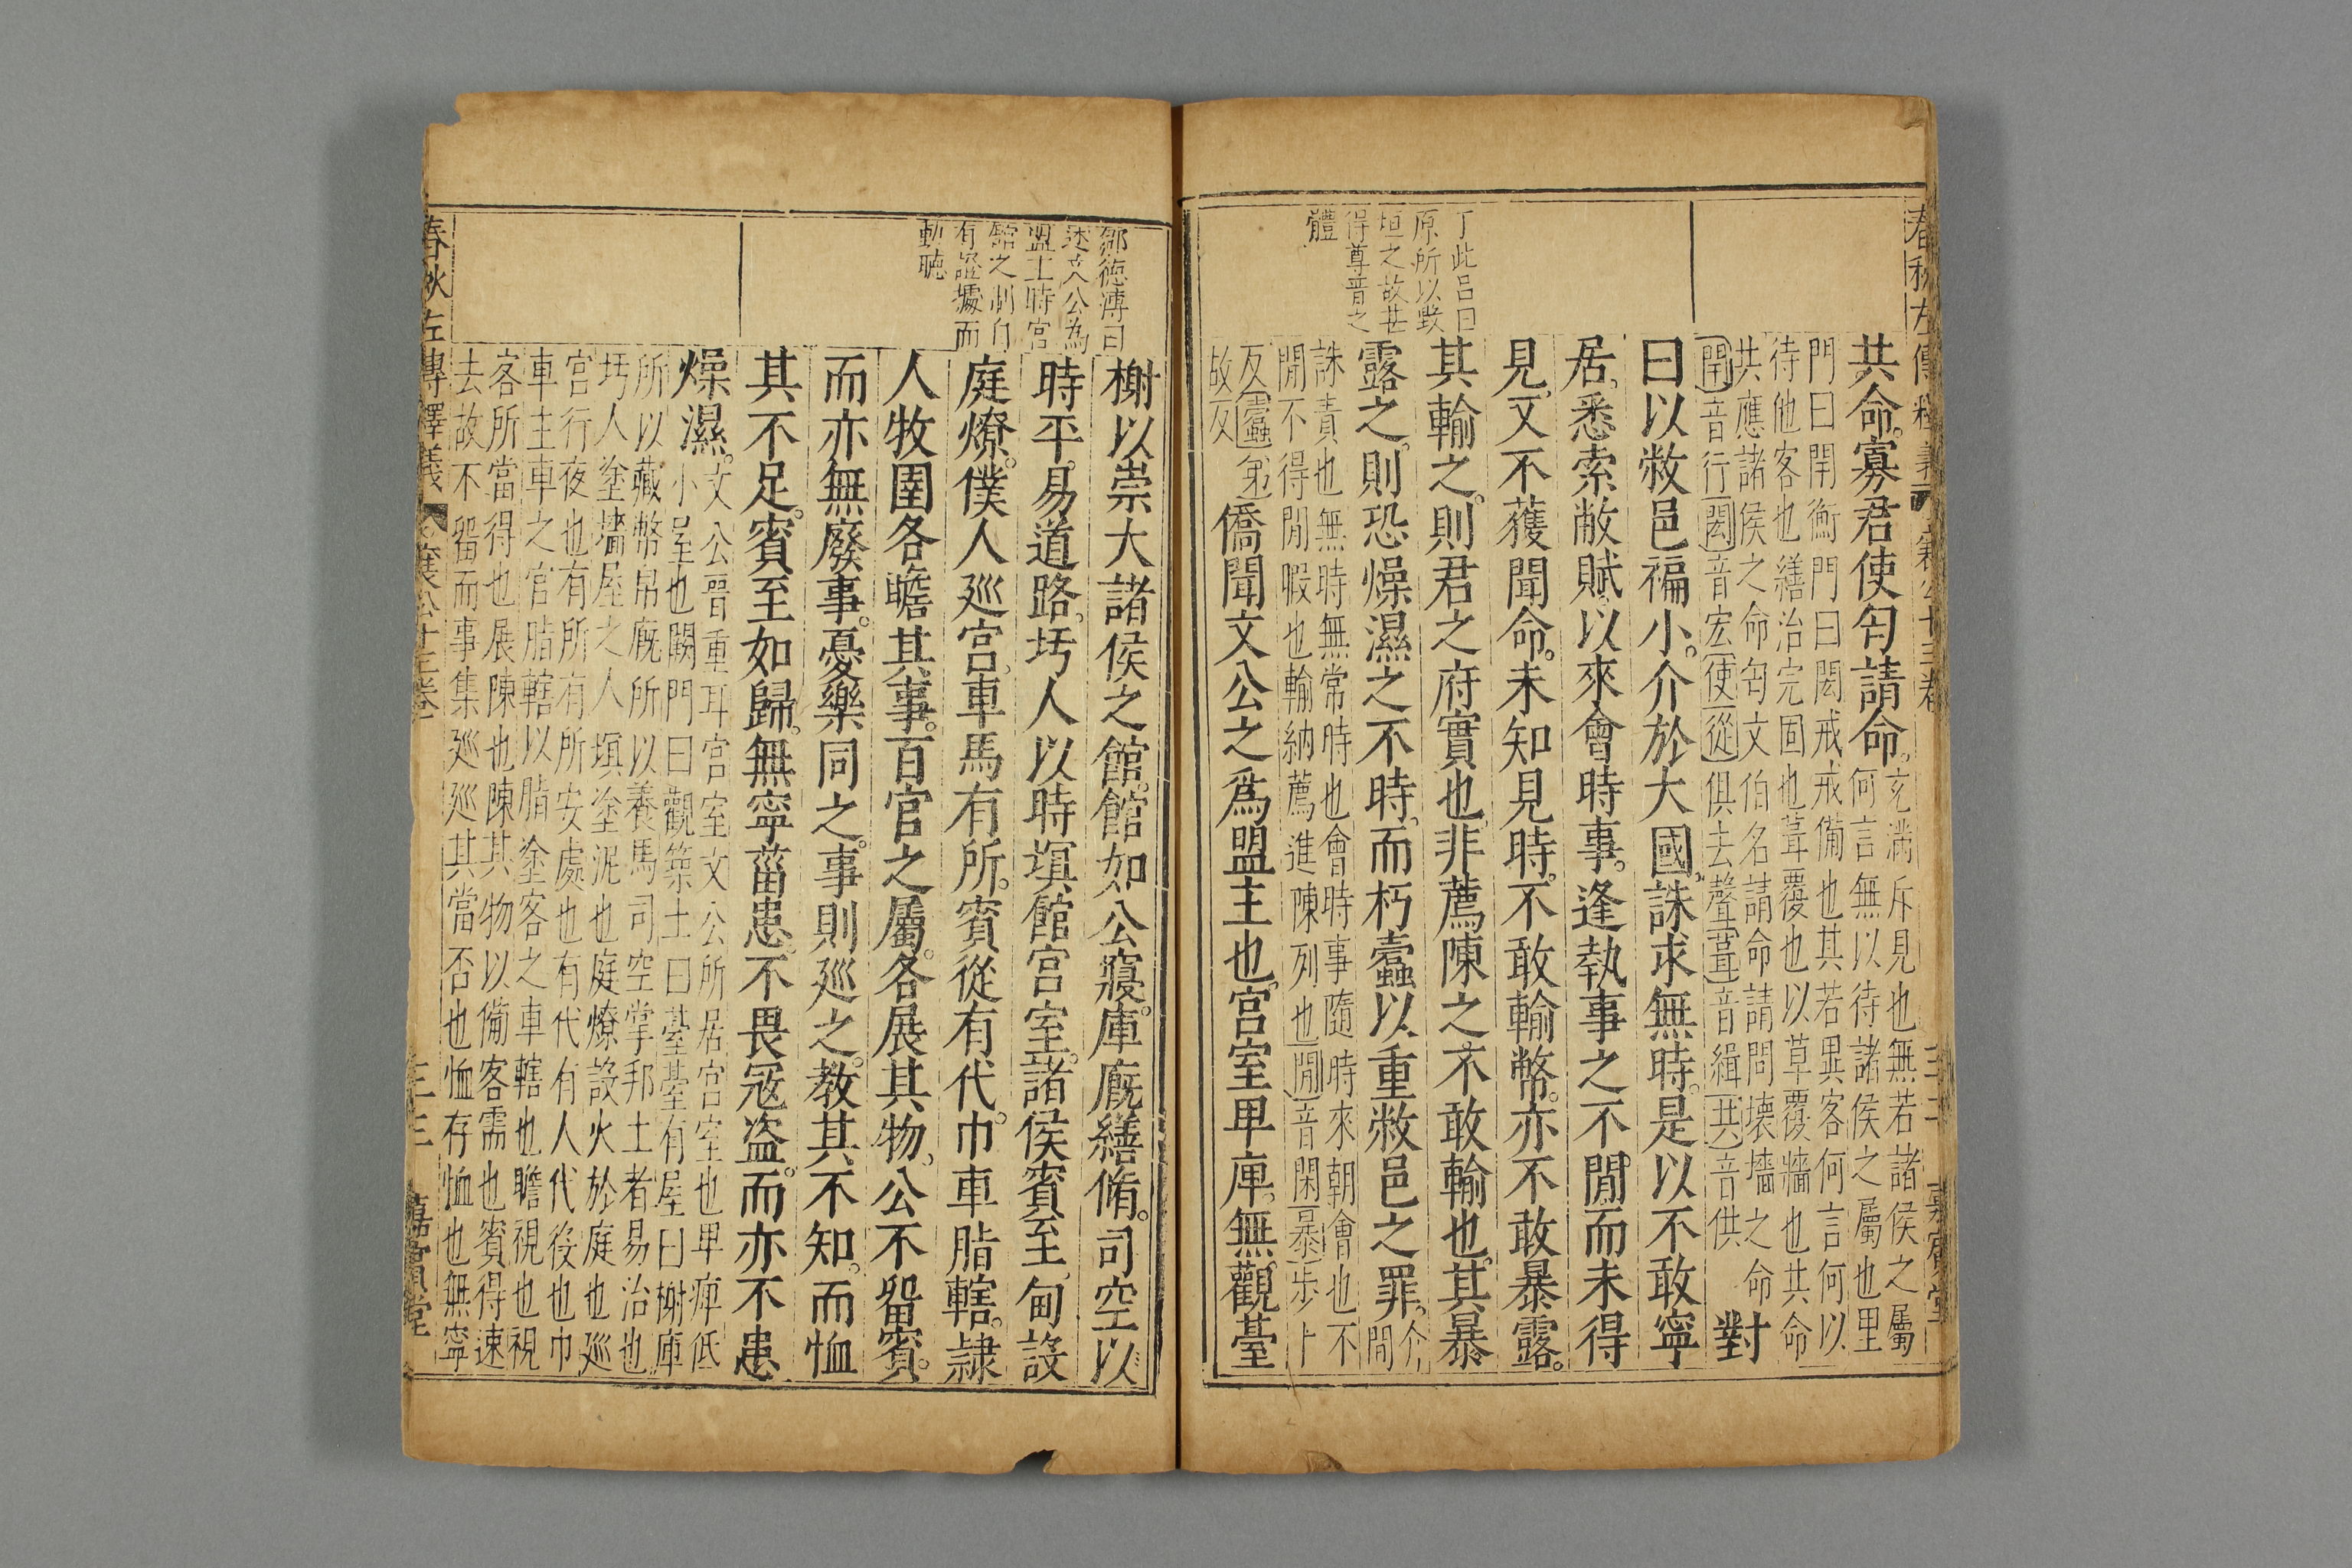 春秋左傳釋義
襄公十三卷
三十二
嘉賓堂
丁此呂曰
原所以毀
垣之故甚
得尊晋之
體
共命。寡君使匄請命。充滿斥見也無若諸侯之屬
何言無以待諸侯之屬也里
門曰閈衡門曰閎戒戒備也其若異客何言何以
待他客也繕治完固也葺覆也以草覆牆也共命
共應諸侯之命匄文伯名請命請問壊墻之命
閈音行閎音宏使從俱去聲葺音緝共音供
對
曰以敝邑褊小。介於大國。誅求無時。是以不敢寧
居。悉索敝賦。以來會時事。逢執事之不閒。而未得
見。又不獲聞命。未知見時。不敢輸幣。亦不敢暴露。
其輸之。則君之府實也。非薦陳之。不敢輸也。其暴
露之。則恐燥濕之不時。而朽蠹以重敝邑之罪。介間
誅責也無時無常時也會時事隨時來朝會也不
閒不得閒暇也輸納薦進陳列也閒音閑暴步卜
反蠹
故反
僑聞文公之爲盟主也。宮室卑庳。無觀臺
鄒德溥曰
述文公為
盟主時宮
舘之制自
有證據而
動聽
榭以崇大諸侯之館。館如公寢。庫廐繕脩。司空以
時平。易道路。圬人以時塓館宮室。諸侯賓至。甸設
庭燎。僕人巡宮。車馬有所。賓從有代。巾車脂轄。隸
人牧圉各瞻其事。百官之屬。各展其物。公不畱賓。
而亦無廢事。憂樂同之。事則巡之。教其不知。而恤
其不足。賓至如歸。無寧菑患。不畏冦盜。而亦不患
燥濕。文公晋重耳宮室文公所居宮室也卑痺低
小室也闕門曰觀築土曰䑓䑓有屋曰榭庫
所以藏幣帛廐所以養馬司空掌邦土者易治也
圬人塗墻屋之人塓塗泥也庭燎設火於庭也巡
宮行夜也有所有所安處也有代有人代役也巾
車主車之官脂轄以脂塗客之車轄也瞻視也視
客所當得也展陳也陳其物以備客需也賓得速
去故不畱而事集巡巡其當否也恤存恤也無寧
春秋左傳釋義
襄公十三卷
三十三
嘉賓堂